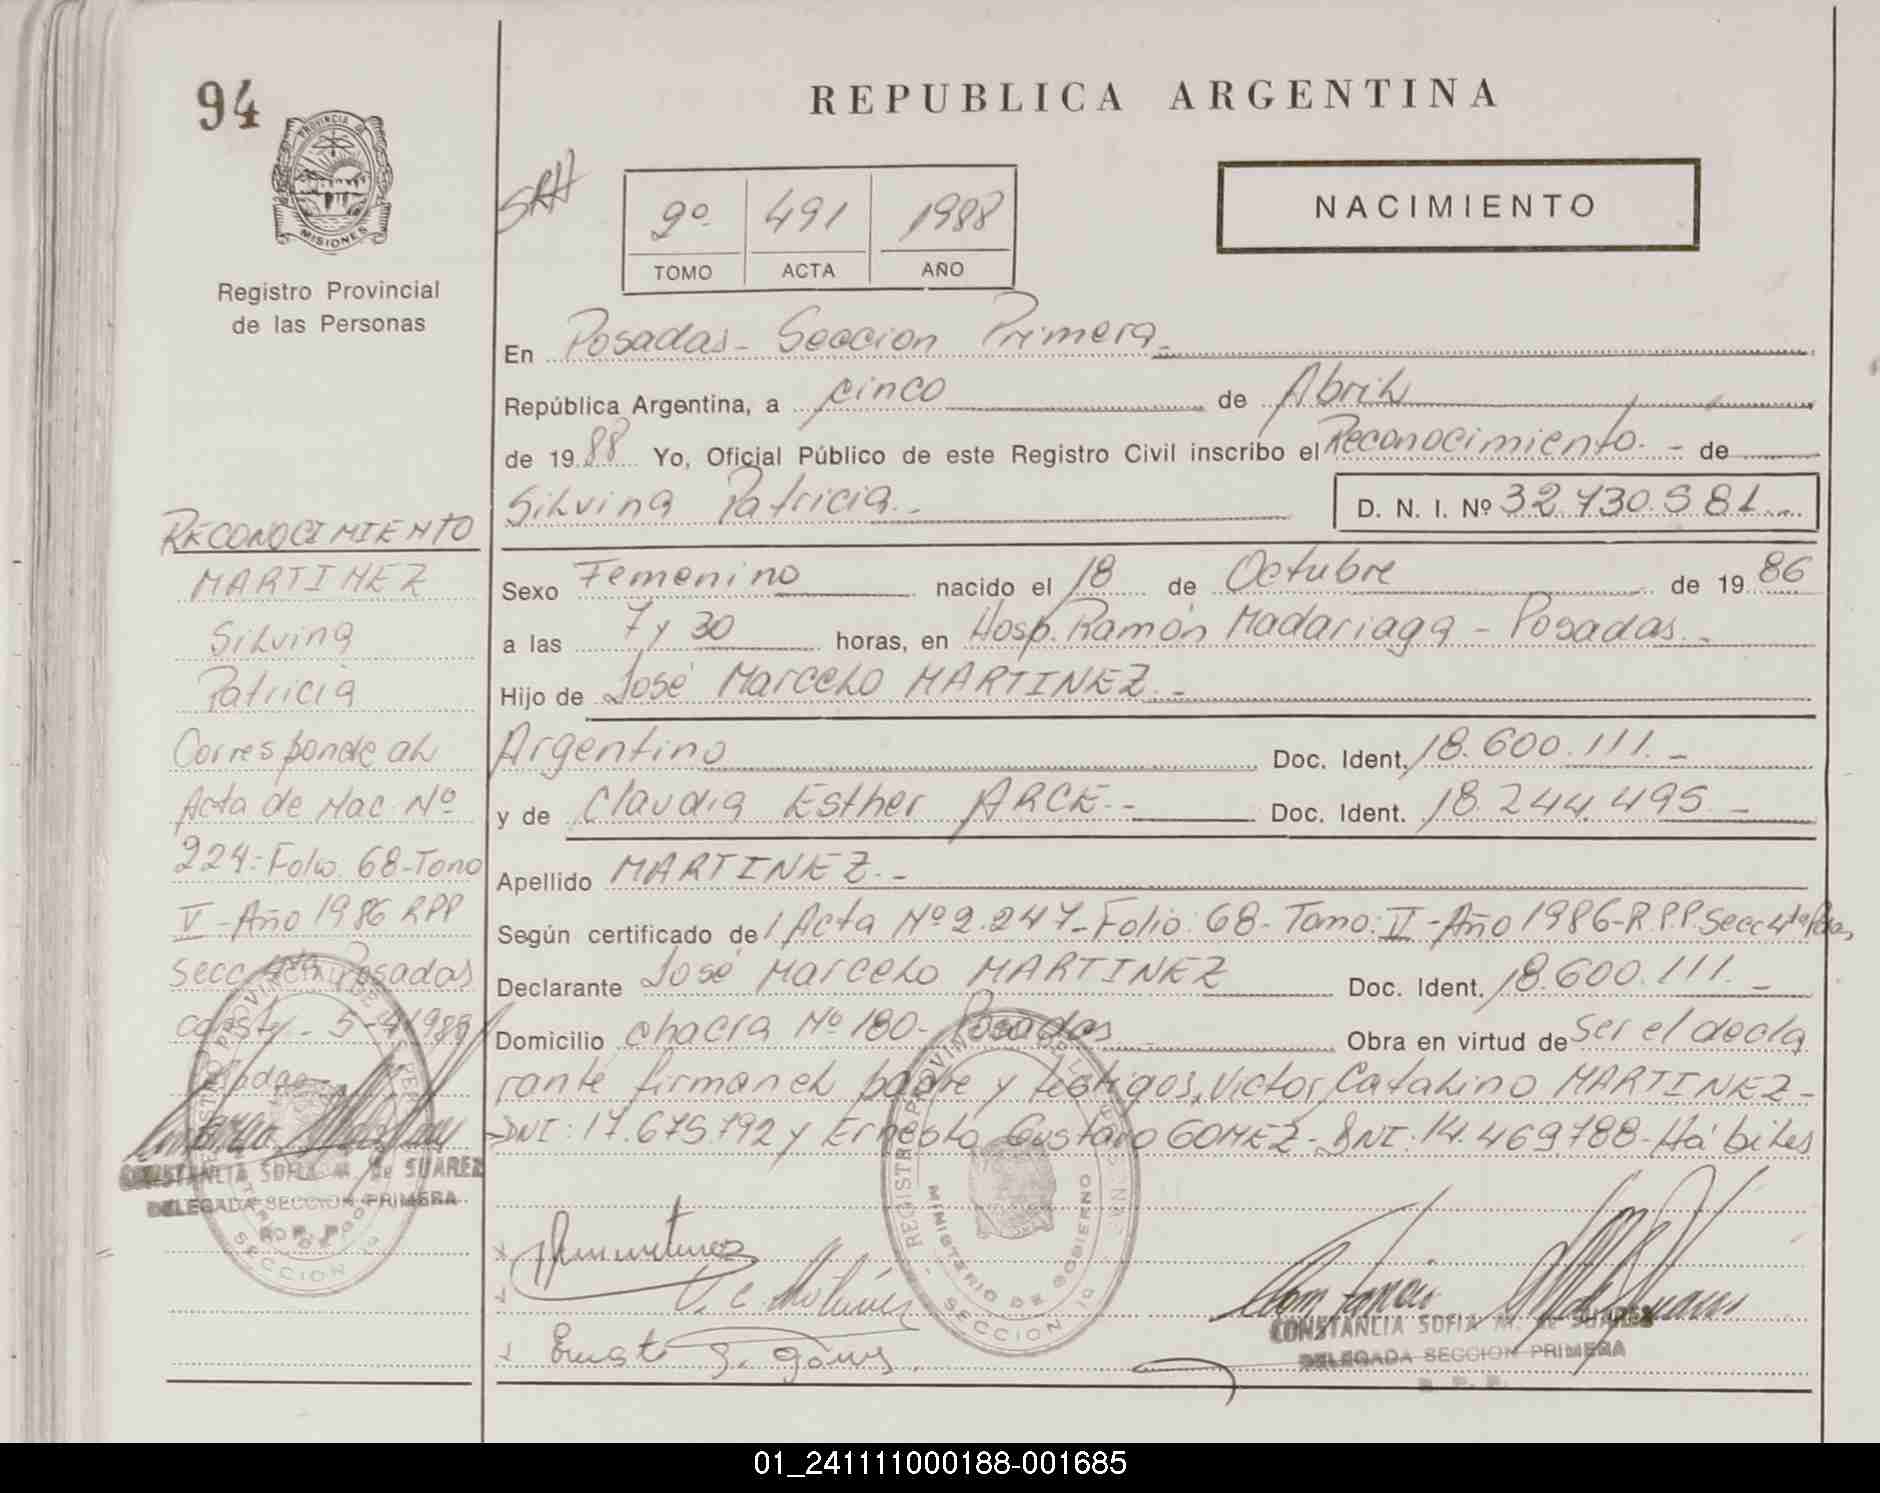 94
PROVINCIA DE
MISIONES
Registro Provincial
de las Personas
REPUBLICA ARGENTINA
NACIMIENTO
2º 491 1988
TOMO ACTA AÑO
En Posadas - Seccion Primera.-
República Argentina, a cinco de Abril
de 1988 Yo, Oficial Público de este Registro Civil inscribo el Reconocimiento.- de
Silvina Patricia.- D. N. I. Nº 32.730.581.-
Sexo Femenino nacido el 18 de Octubre de 1986
a las 7 y 30 horas, en Hosp. Ramón Madariaga - Posadas.-
Hijo de José Marcelo MARTINEZ.-
Argentino Doc. Ident. 18.600.111.-
y de Claudia Esther ARCE.- Doc. Ident. 18.244.495.-
Apellido MARTINEZ.-
Según certificado de Acta Nº 2.247-Folio: 68- Tomo: II -Año 1986-R.P.P. Secc 4ta Pdas,
Declarante José Marcelo MARTINEZ Doc. Ident. 18.600.111.-
Domicilio chacra Nº 180- Posadas Obra en virtud de Ser el decla
rante firman el padre y testigos, Victor Catalino MARTINEZ-
DNI: 17.675.792 y Ernesto Gustavo GOMEZ- DNI: 14.469.788- Hábiles
RECONOCIMIENTO
MARTINEZ
Silvina
Patricia
Corresponde al
Acta de Nac. Nº
224-Folio 68-Tomo
V -Año 1986 RPP
Secc 4ta Posadas
5-4-1988
CONSTANCIA SOFIA M. de SUAREZ
DELEGADA SECCION PRIMERA
R. P. P.
REGISTRO PROVINCIAL DE LAS PERSONAS
MINISTERIO DE GOBIERNO
SECCION 1a
CONSTANCIA SOFIA M. de SUAREZ
DELEGADA SECCION PRIMERA
R. P. P.
01_241111000188-001685